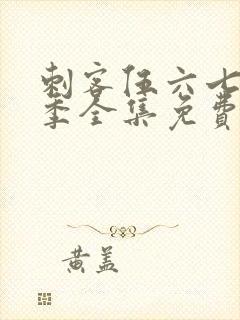 刺客伍六七
季全集免费
黄盖